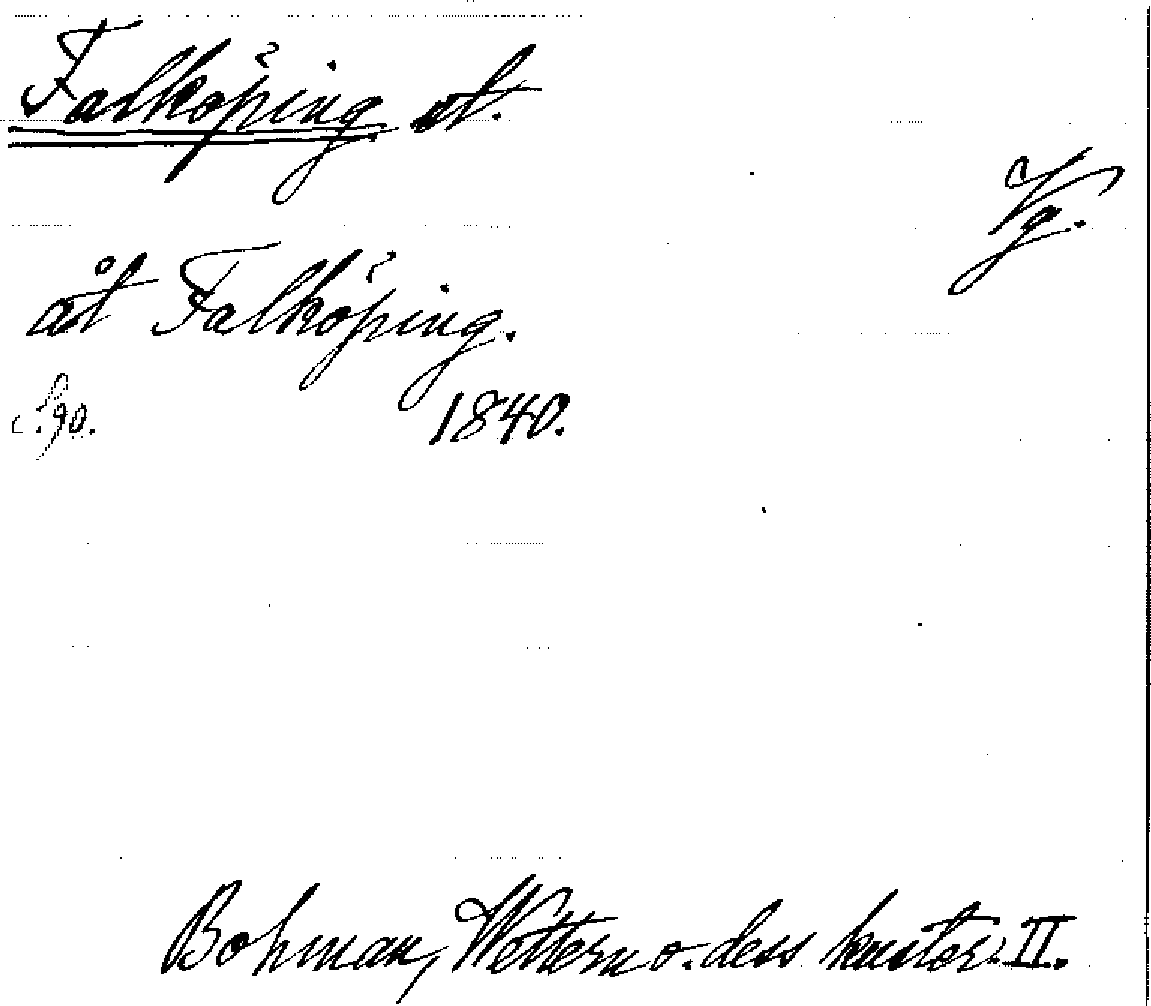 Falköping st.
Vg.
åt Falköping.
S. 90. 1840.
Bohman, Wettern o. dess kuster. II.